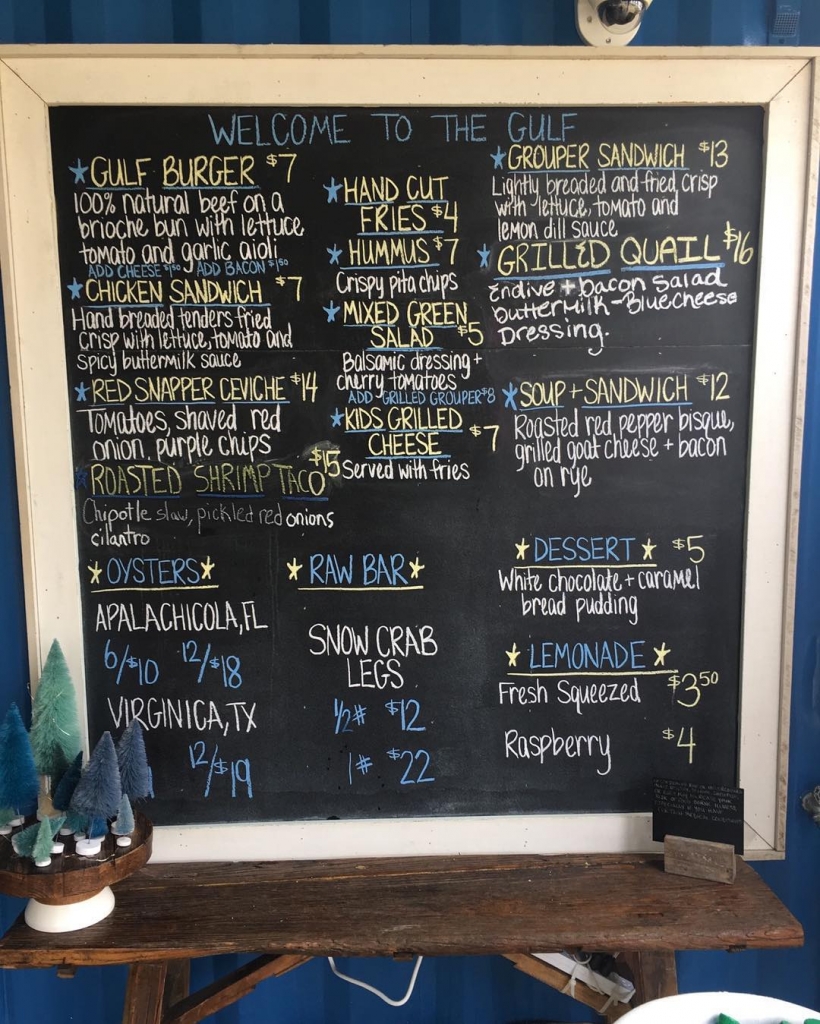 WELCOME TO THE GULF
GULF BURGER $7
100% natural beef on a
brioche bun with lettuce
tomato and garlic aioli
ADD CHEESE $1.50 ADD BACON $1.50
CHICKEN SANDWICH $7
Hand breaded tenders fried
crisp with lettuce, tomato and
spicy buttermilk sauce
RED SNAPPER CEVICHE $14
Tomatoes, shaved red
onion, purple chips
ROASTED SHRIMP TACO $15
Chipotle slaw, pickled red onions
cilantro
HAND CUT
FRIES $4
HUMMUS $7
Crispy pita chips
MIXED GREEN
SALAD $5
Balsamic dressing +
cherry tomatoes
ADD GRILLED GROUPER $8
KIDS GRILLED
CHEESE $7
Served with fries
GROUPER SANDWICH $13
Lightly breaded and fried, crisp
with lettuce, tomato and
lemon dill sauce
GRILLED QUAIL $16
Endive + bacon salad
buttermilk-Bluecheese
Dressing.
SOUP + SANDWICH $12
Roasted red pepper bisque,
grilled goat cheese + bacon
on rye
OYSTERS
APALACHICOLA, FL
6/$10 12/$18
VIRGINICA, TX
12/$19
RAW BAR
SNOW CRAB
LEGS
1/2# $12
1# $22
DESSERT $5
White chocolate + caramel
bread pudding
LEMONADE
Fresh Squeezed $3.50
Raspberry $4